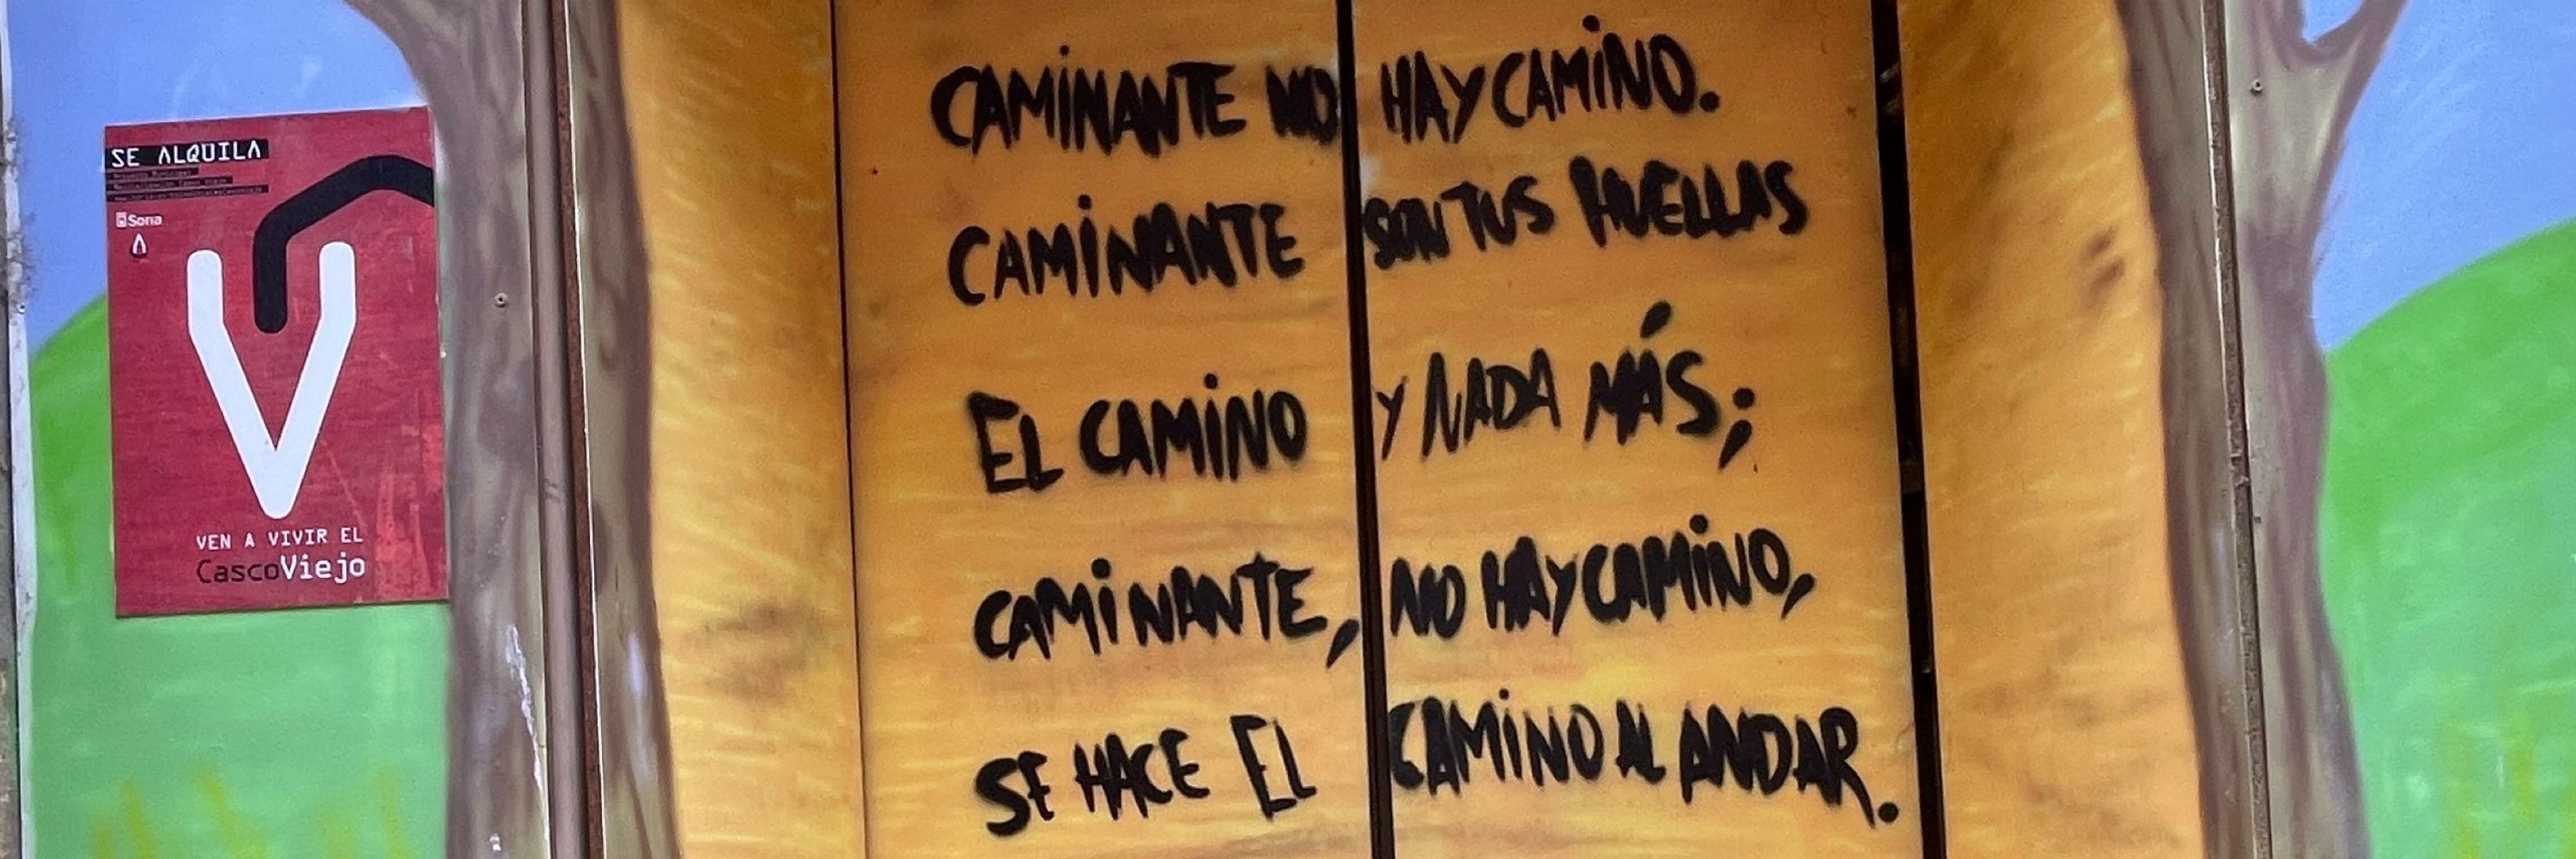 SE ALQUILA
Soria
VEN A VIVIR EL
CascoViejo
CAMINANTE NO HAY CAMINO.
CAMINANTE SON TUS HUELLAS
EL CAMINO Y NADA MÁS;
CAMINANTE, NO HAY CAMINO,
SE HACE EL CAMINO AL ANDAR.